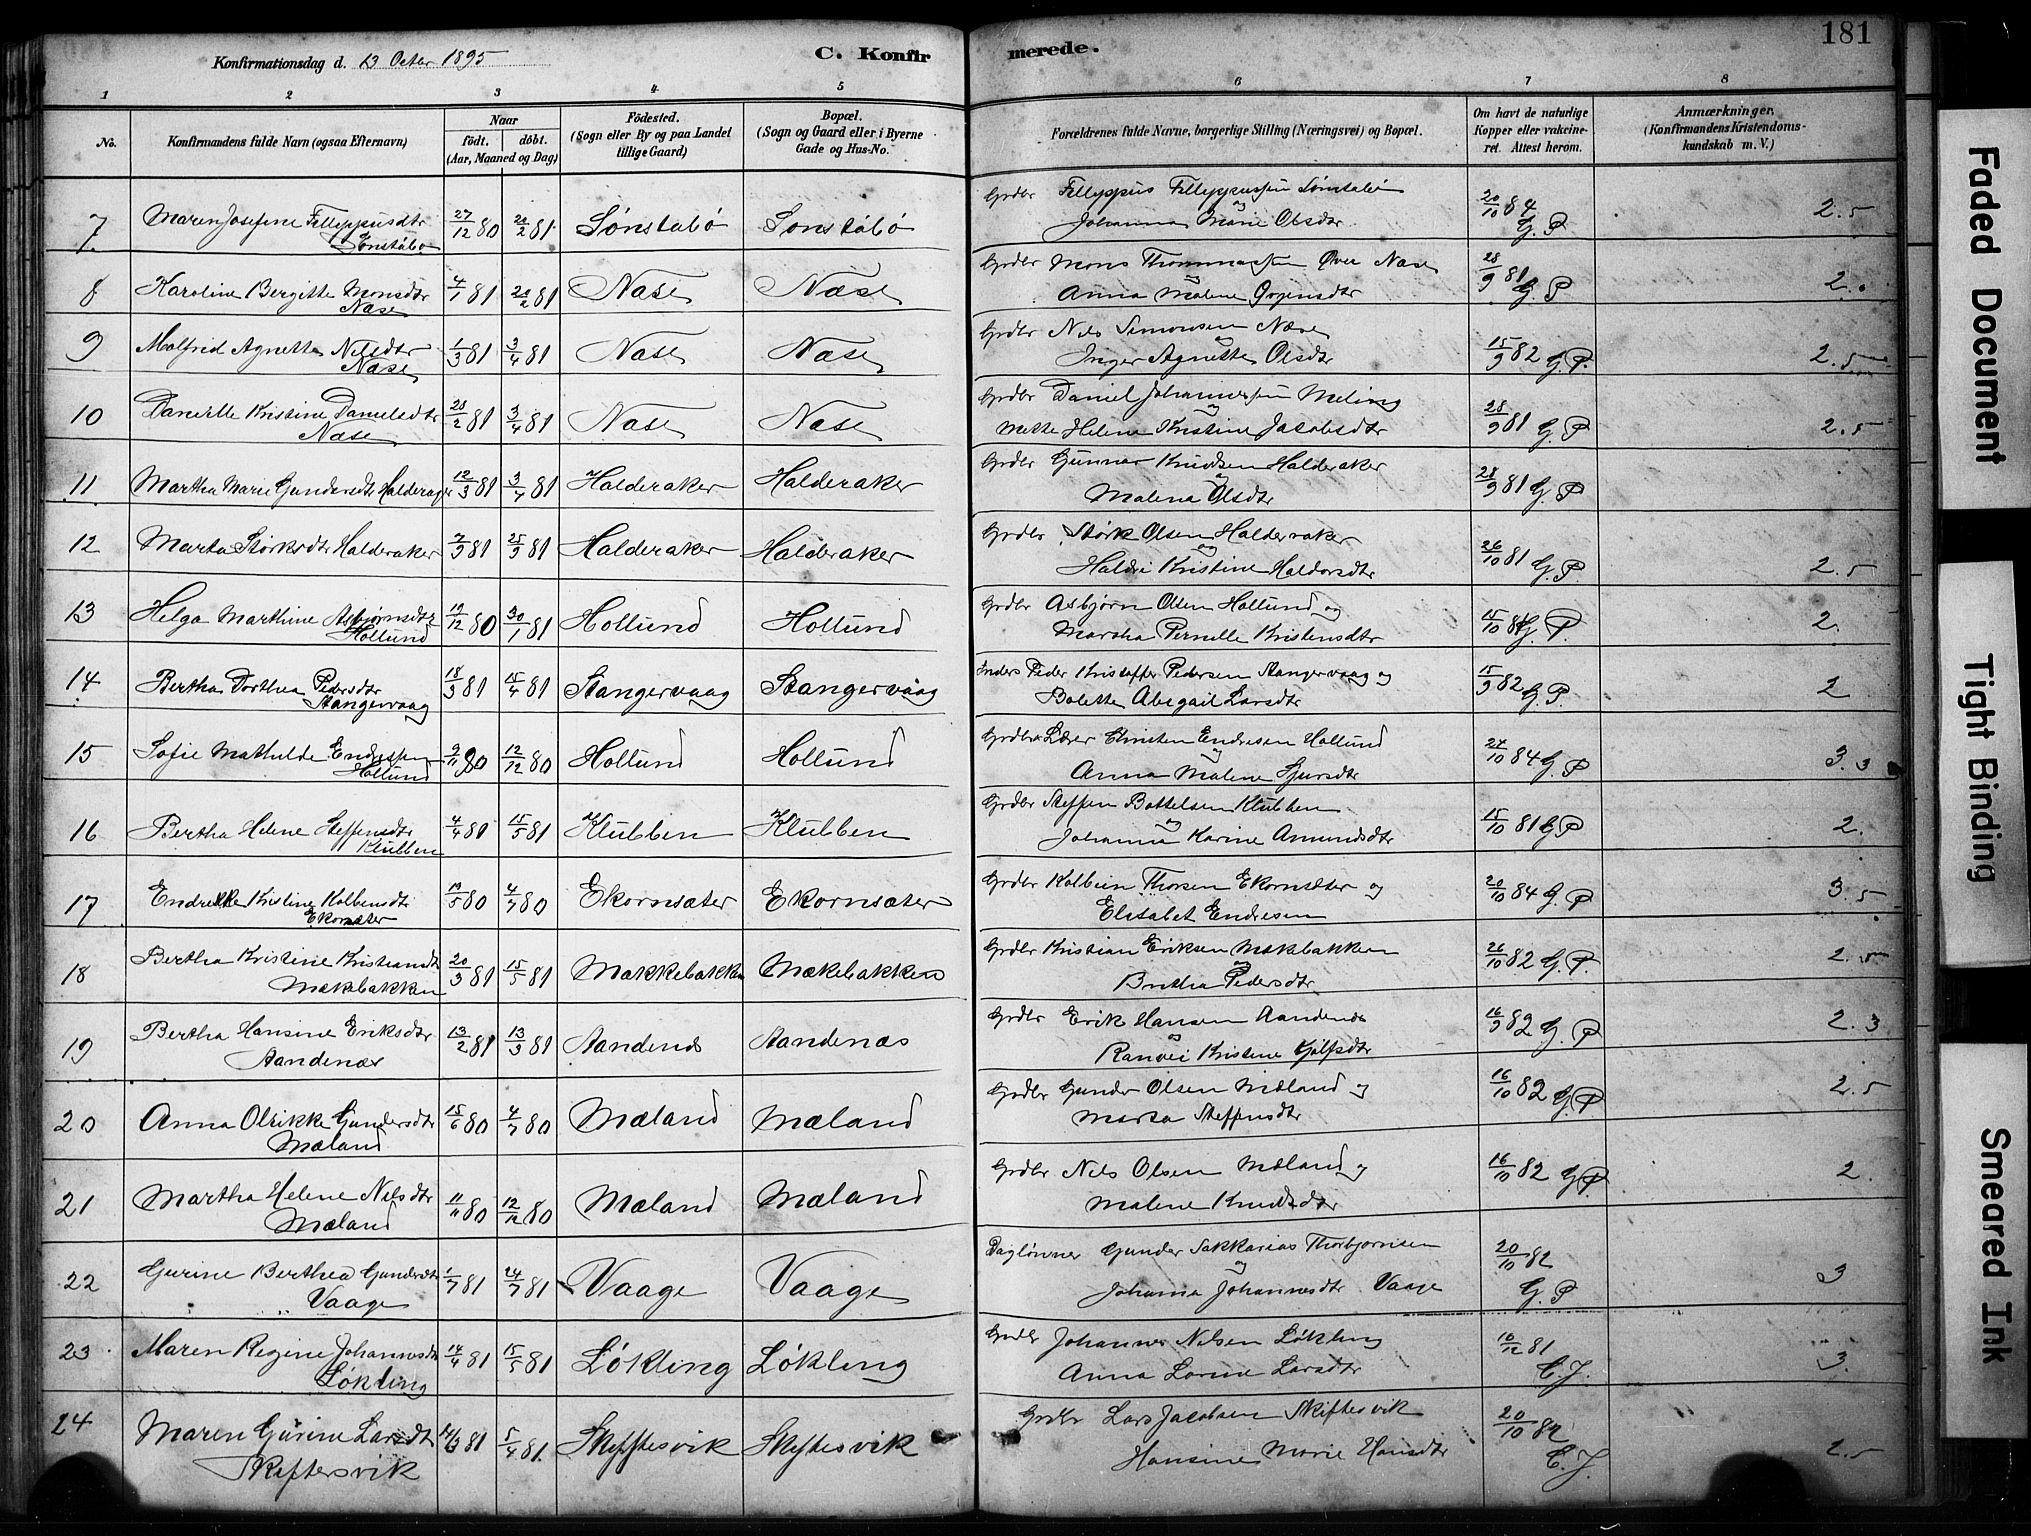 181
Konfirmationsdag d. 13 Octbr 1895
C. Konfirmerede.
1 2 3 4 5 6 7 8
No.
Konfirmandens fulde Navn (ogsaa Efternavn)
Naar
født. døbt.
(Aar, Maaned og Dag)
Fødested.
(Sogn eller By og paa Landet
tillige Gaard)
Bopæl.
(Sogn og Gaard eller i Byerne
Gade og Hus-No.
Forældrenes fulde Navne, borgerlige Stilling (Næringsvei) og Bopæl.
Om havt de naturlige
Kopper eller vakcine-
ret. Attest herom.
Anmærkninger,
(Konfirmandens Kristendoms-
kundskab m. V.)
7. Maren Josefine Fillippusdtr 27/12 80 20/2 81. Sønstabø Sønstabø Grdbr Fillippus Fillippussen Sønstabø 20/10 84 2.5
Sønstabø og Johanna Marie Olsdtr G. P
8 Karoline Bergitte Monsdtr 4/1 81 20/2 81 Næse Næse Grdbr Mons Thommassen Øvre Næse 28/9 81 G. P 2.
Næse og Anna Malene Gojensdtr
9 Malfrid Agnette Nilsdtr 1/3 81 3/4 81 Næse Næse Grdbr Nils Simonsen Næse 15/9 82 G. P. 2.5
Næse Inger Agnette Olsdtr
10 Danielle Kristine Danielsdtr 28/2 81 3/4 81 Næse Næse Grdbr Daniel Johannessen Meling 28/9 81 G P 2.5
Næse og Mette Helene Kristine Jacobsdtr
11 Martha Marie Gundersdtr Halderaker 12/3 81 3/4 81 Halderaker Halderaker Grdbr Gunnar Knudsen Halderaker 28/9 81 G. P
og Malena Olsdtr
12 Marta Størksdtr Halderaker 7/9 81 25/9 81 Halderaker Halderaker Grdbr Størk Olsen Halderaker 26/10 81 G. P 2.5
og Haldri Kristine Haldorsdtr
13 Helga Marthine Asbjørnsdtr 19/12 80 30/1 81 Hollund Hollund Grdbr Asbjørn Olsen Hollund og 15/10 84 G. P. 2.
Hollund Martha Pernelle Kristensdtr
14 Bertha Dorthea Pedersdtr 18/3 81 15/4 81 Stangervaag Stangervaag Inders Peder Kristoffer Pedersen Stangervaag og 15/9 82 G. P. 2
Stangervaag Bolette Abegail Larsdtr
15 Sofie Mathilde Endresen 9/11 80 12/12 80 Hollund Hollund Grdbr Lærer Christen Endresen Hollund 27/10 84 G. P 3.3
Hollund og Anna Malene Sjursdtr
16 Bertha Helene Steffensdtr 4/4 80 15/5 81 Klubben Klubben Grdbr Steffen Bottelsen Klubben 15/10 81 G P 2.
Klubben og Johanna Karine Amundsdtr
17 Endrikke Kristine Kolbensdt 19/5 80 4/7 80 Ekornsæter Ekornsæter Grdbr Kolbein Thorsen Ekornsæter og 20/10 84 G. P 3.5
Ekornsæter Elisabet Endresen
18 Bertha Kristine Kristiansdt 20/3 81 15/5 81 Mækkebakken Mækebakken Grdbr Kristian Eriksen Mækbakken 26/10 82 G. P. 2.
Mækebakken og Britha Pedersdtr
19 Bertha Hansine Eriksdtr 13/2 81 13/3 81 Aandenes Aandenæs Grdbr Erik Hansen Aandenæs 16/9 82 G. P 2.3
Aandenæs og Ranvei Kristine Kjølfsdtr
20 Anna Olrikke Gundersdtr 15/6 80 4/7 80 Mæland Mæland Grdbr Gunder Olsen Mæland og 16/10 82 G. P 2.5
Mæland Marta Steffensdtr
21 Martha Helene Nilsdtr 11/11 80 12/12 80 Mæland Mæland Grdbr Nils Olsen Mæland og 16/10 82 G P. 2.
Mæland Malene Knudsdtr
22 Gurine Berthea Gundersdtr 1/7 81 24/7 81 Vaage Vaage Daglønner Gunder Sakkarias Thorbjørnsen 20/10 82 3
Vaage og Johanna Johannesdtr Vaage G. P
23 Maren Regine Johannesdt 14/4 81 15/5 81 Løkling Løkling Grdbr Johannes Nilsen Løkling 16/12 81 3.
Løkling Anna Lorine Larsdtr C. J.
24 Maren Gurine Larsdt 14/3 81 5/4 81. Skiftesvik Skiftesvik Grdbr Lars Jacobsen Skiftesvik 20/10 82 2.5
Skiftesvik Hansine Marie Hansdtr C. J.
Faded Document
Tight Binding
Smeared Ink